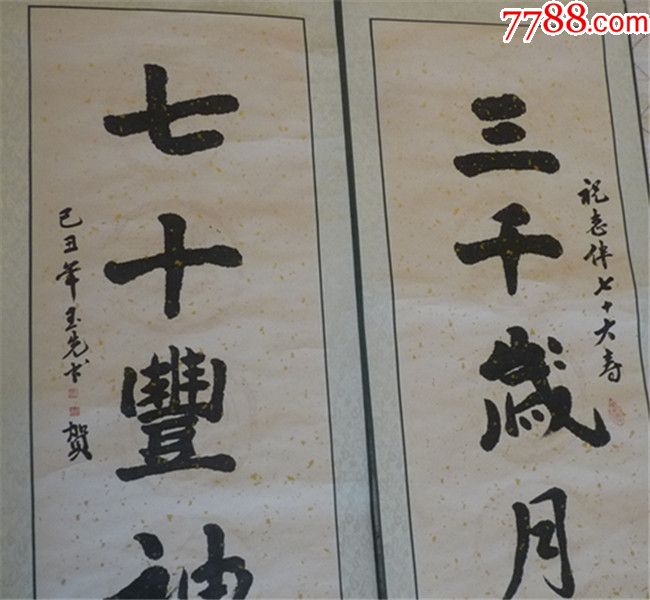 7788.com
三千歲月
祝志伴七十大寿
七十豐神
己丑年玉先书
賀